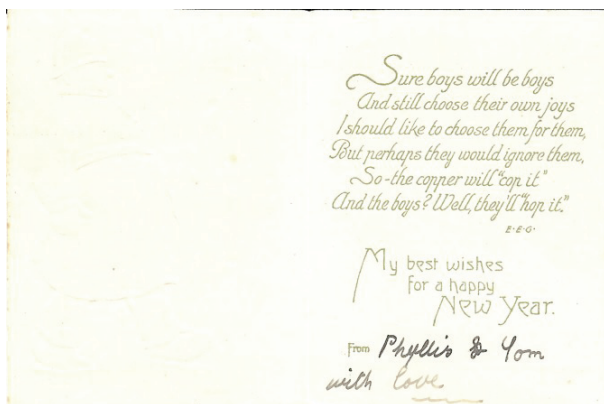 Sure boys will be boys
And still choose their own joys
I should like to choose them for them,
But perhaps they would ignore them,
So-the copper will "cop it"
And the boys? Well, they'll "hop it."
E·E·G·
My best wishes
for a happy
New Year.
From Phyllis & Tom
with love